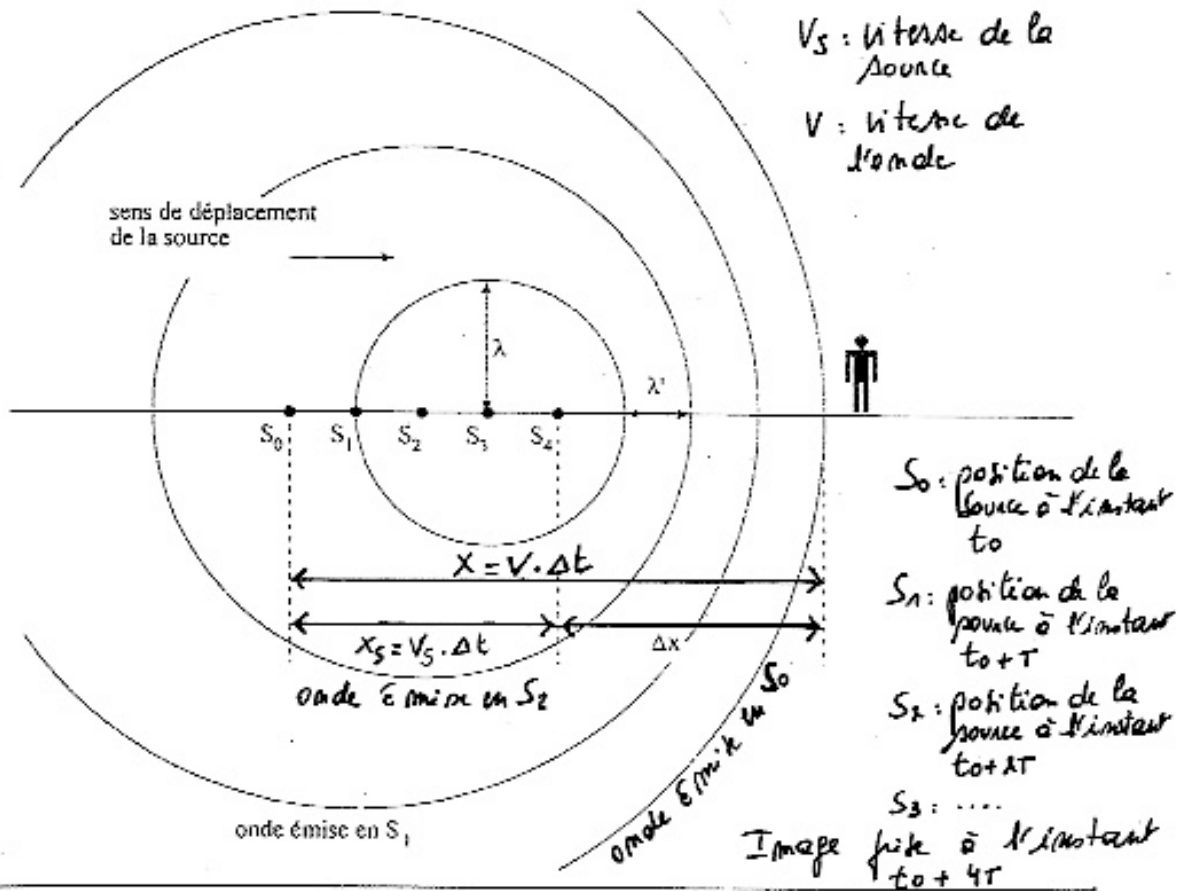 V_S : vitesse de la
source
V : vitesse de
l'onde
sens de déplacement
de la source
λ
λ'
S₀ S₁ S₂ S₃ S₄
X = V · Δt
x_S = V_S · Δt
Δx
onde émise en S₂
onde émise en S₀
onde émise en S₁
S₀ : position de la
source à l'instant
t₀
S₁ : position de la
source à l'instant
t₀ + T
S₂ : position de la
source à l'instant
t₀ + 2T
S₃ : ....
Image prise à l'instant
t₀ + 4T